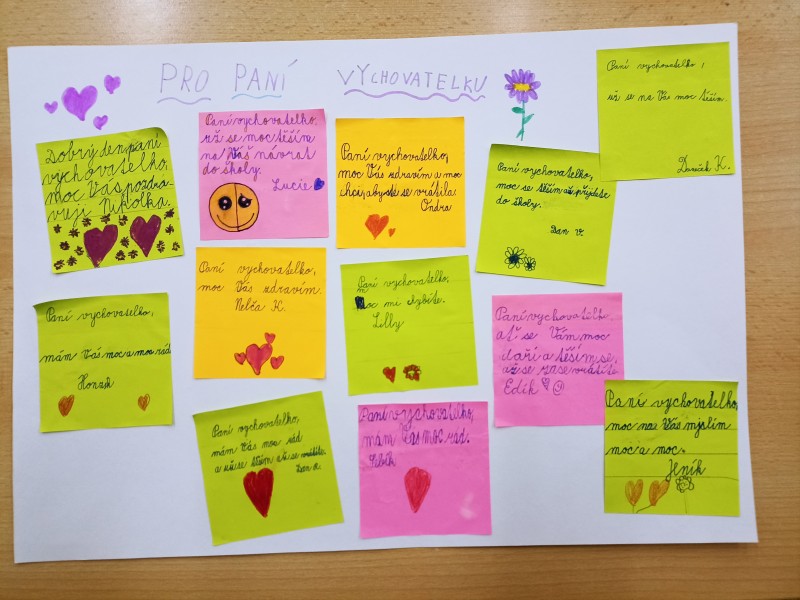 PRO PANÍ VYCHOVATELKU
Dobrý den paní
vychovatelko,
moc Vás pozdra-
vuji Nikolka.
Paní vychovatelko,
už se moc těším
na Váš návrat
do školy.
Lucie
Paní vychovatelko,
moc Vás zdravím a moc
chci, abyste se vrátila.
Ondra
Paní vychovatelko,
moc se těším až přijdete
do školy.
Dan V.
Paní vychovatelko,
už se na Vás moc těším.
Dareček K.
Paní vychovatelko,
mám Vás moc a moc rád
Honzík
Paní vychovatelko,
moc Vás zdravím.
Nelča K.
Paní vychovatelko,
moc mi chybíte.
Lilly
Paní vychovatelko,
ať se Vám moc
daří a těším se,
až se zase vrátíte
Edík
Paní vychovatelko,
mám Vás moc rád
a už se těším až se vrátíte.
Dan K.
Paní vychovatelko,
mám Vás moc rád.
Paní vychovatelko,
moc na Vás myslím
moc a moc.
Jeník